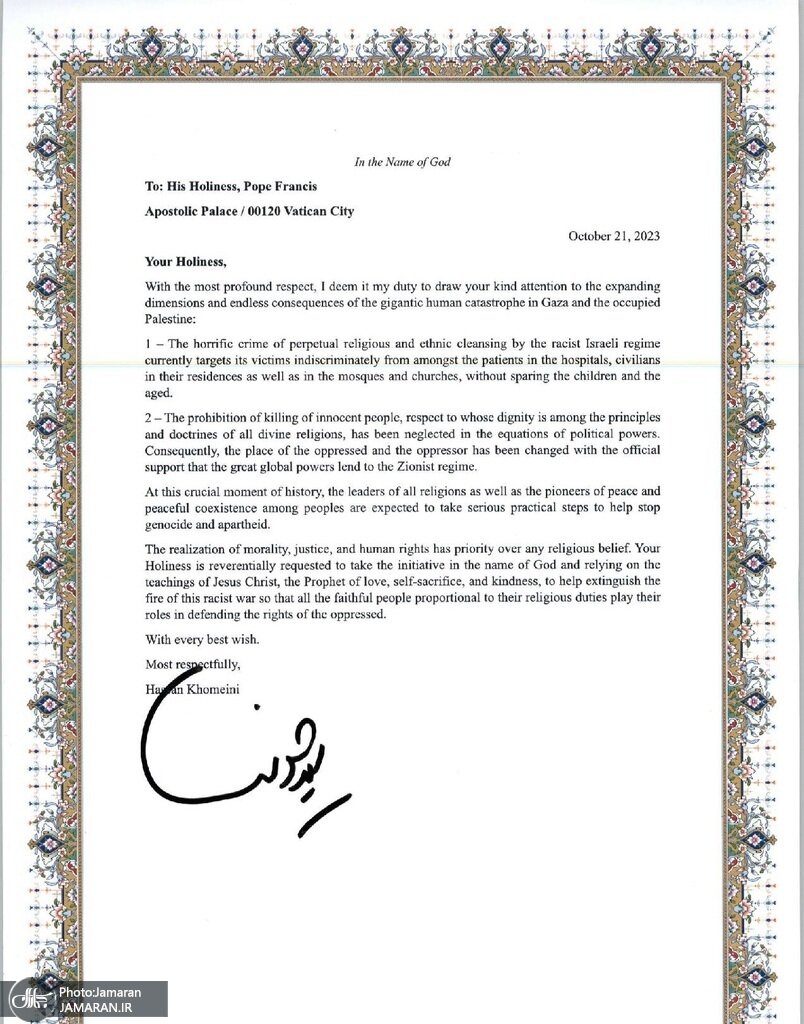 In the Name of God
To: His Holiness, Pope Francis
Apostolic Palace / 00120 Vatican City
October 21, 2023
Your Holiness,
With the most profound respect, I deem it my duty to draw your kind attention to the expanding
dimensions and endless consequences of the gigantic human catastrophe in Gaza and the occupied
Palestine:
1 – The horrific crime of perpetual religious and ethnic cleansing by the racist Israeli regime
currently targets its victims indiscriminately from amongst the patients in the hospitals, civilians
in their residences as well as in the mosques and churches, without sparing the children and the
aged.
2 – The prohibition of killing of innocent people, respect to whose dignity is among the principles
and doctrines of all divine religions, has been neglected in the equations of political powers.
Consequently, the place of the oppressed and the oppressor has been changed with the official
support that the great global powers lend to the Zionist regime.
At this crucial moment of history, the leaders of all religions as well as the pioneers of peace and
peaceful coexistence among peoples are expected to take serious practical steps to help stop
genocide and apartheid.
The realization of morality, justice, and human rights has priority over any religious belief. Your
Holiness is reverentially requested to take the initiative in the name of God and relying on the
teachings of Jesus Christ, the Prophet of love, self-sacrifice, and kindness, to help extinguish the
fire of this racist war so that all the faithful people proportional to their religious duties play their
roles in defending the rights of the oppressed.
With every best wish.
Most respectfully,
Hassan Khomeini
Photo:Jamaran
JAMARAN.IR